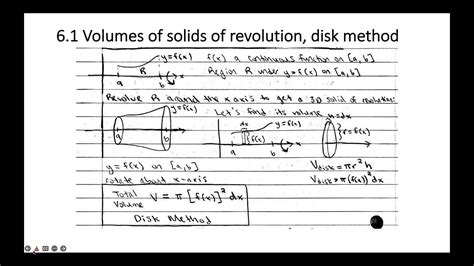 6.1 Volumes of solids of revolution, disk method
y=f(x) f(x) a continuous function on [a,b]
R Region R under y=f(x) on [a,b]
a b x
Revolve R around the x axis to get a 3D solid of revolution:
y=f(x) Let's find its volume h=dx
dx y=f(x) r=f(x)
a b a b x
y=f(x) on [a,b] Vdisk=πr²h
rotate about x-axis Vdisk=π(f(x))²dx
Total Volume V = π [f(x)]² dx
Disk Method